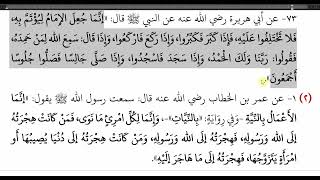 ٧٣- عن أبي هريرة رضي الله عنه عن النبي ﷺ قال: «إِنَّمَا جُعِلَ الإِمَامُ لِيُؤْتَمَّ بِهِ،
فَلَا تَخْتَلِفُوا عَلَيْهِ، فَإِذَا كَبَّرَ فَكَبِّرُوا، وَإِذَا رَكَعَ فَارْكَعُوا، وَإِذَا قَالَ: سَمِعَ اللَّهُ لِمَنْ حَمِدَهُ،
فَقُولُوا: رَبَّنَا وَلَكَ الْحَمْدُ، وَإِذَا سَجَدَ فَاسْجُدُوا، وَإِذَا صَلَّى جَالِسًا فَصَلُّوا جُلُوسًا
أَجْمَعُونَ»
(٢) ١- عن عمر بن الخطاب رضي الله عنه قال: سمعت رسول الله ﷺ يقول: «إِنَّمَا
الأَعْمَالُ بِالنِّيَّةِ - وَفِي رِوَايَةٍ: بِالنِّيَّاتِ - وَإِنَّمَا لِكُلِّ امْرِئٍ مَا نَوَى، فَمَنْ كَانَتْ هِجْرَتُهُ
إِلَى اللَّهِ وَرَسُولِهِ، فَهِجْرَتُهُ إِلَى اللَّهِ وَرَسُولِهِ، وَمَنْ كَانَتْ هِجْرَتُهُ إِلَى دُنْيَا يُصِيبُهَا أَوِ
امْرَأَةٍ يَتَزَوَّجُهَا، فَهِجْرَتُهُ إِلَى مَا هَاجَرَ إِلَيْهِ».